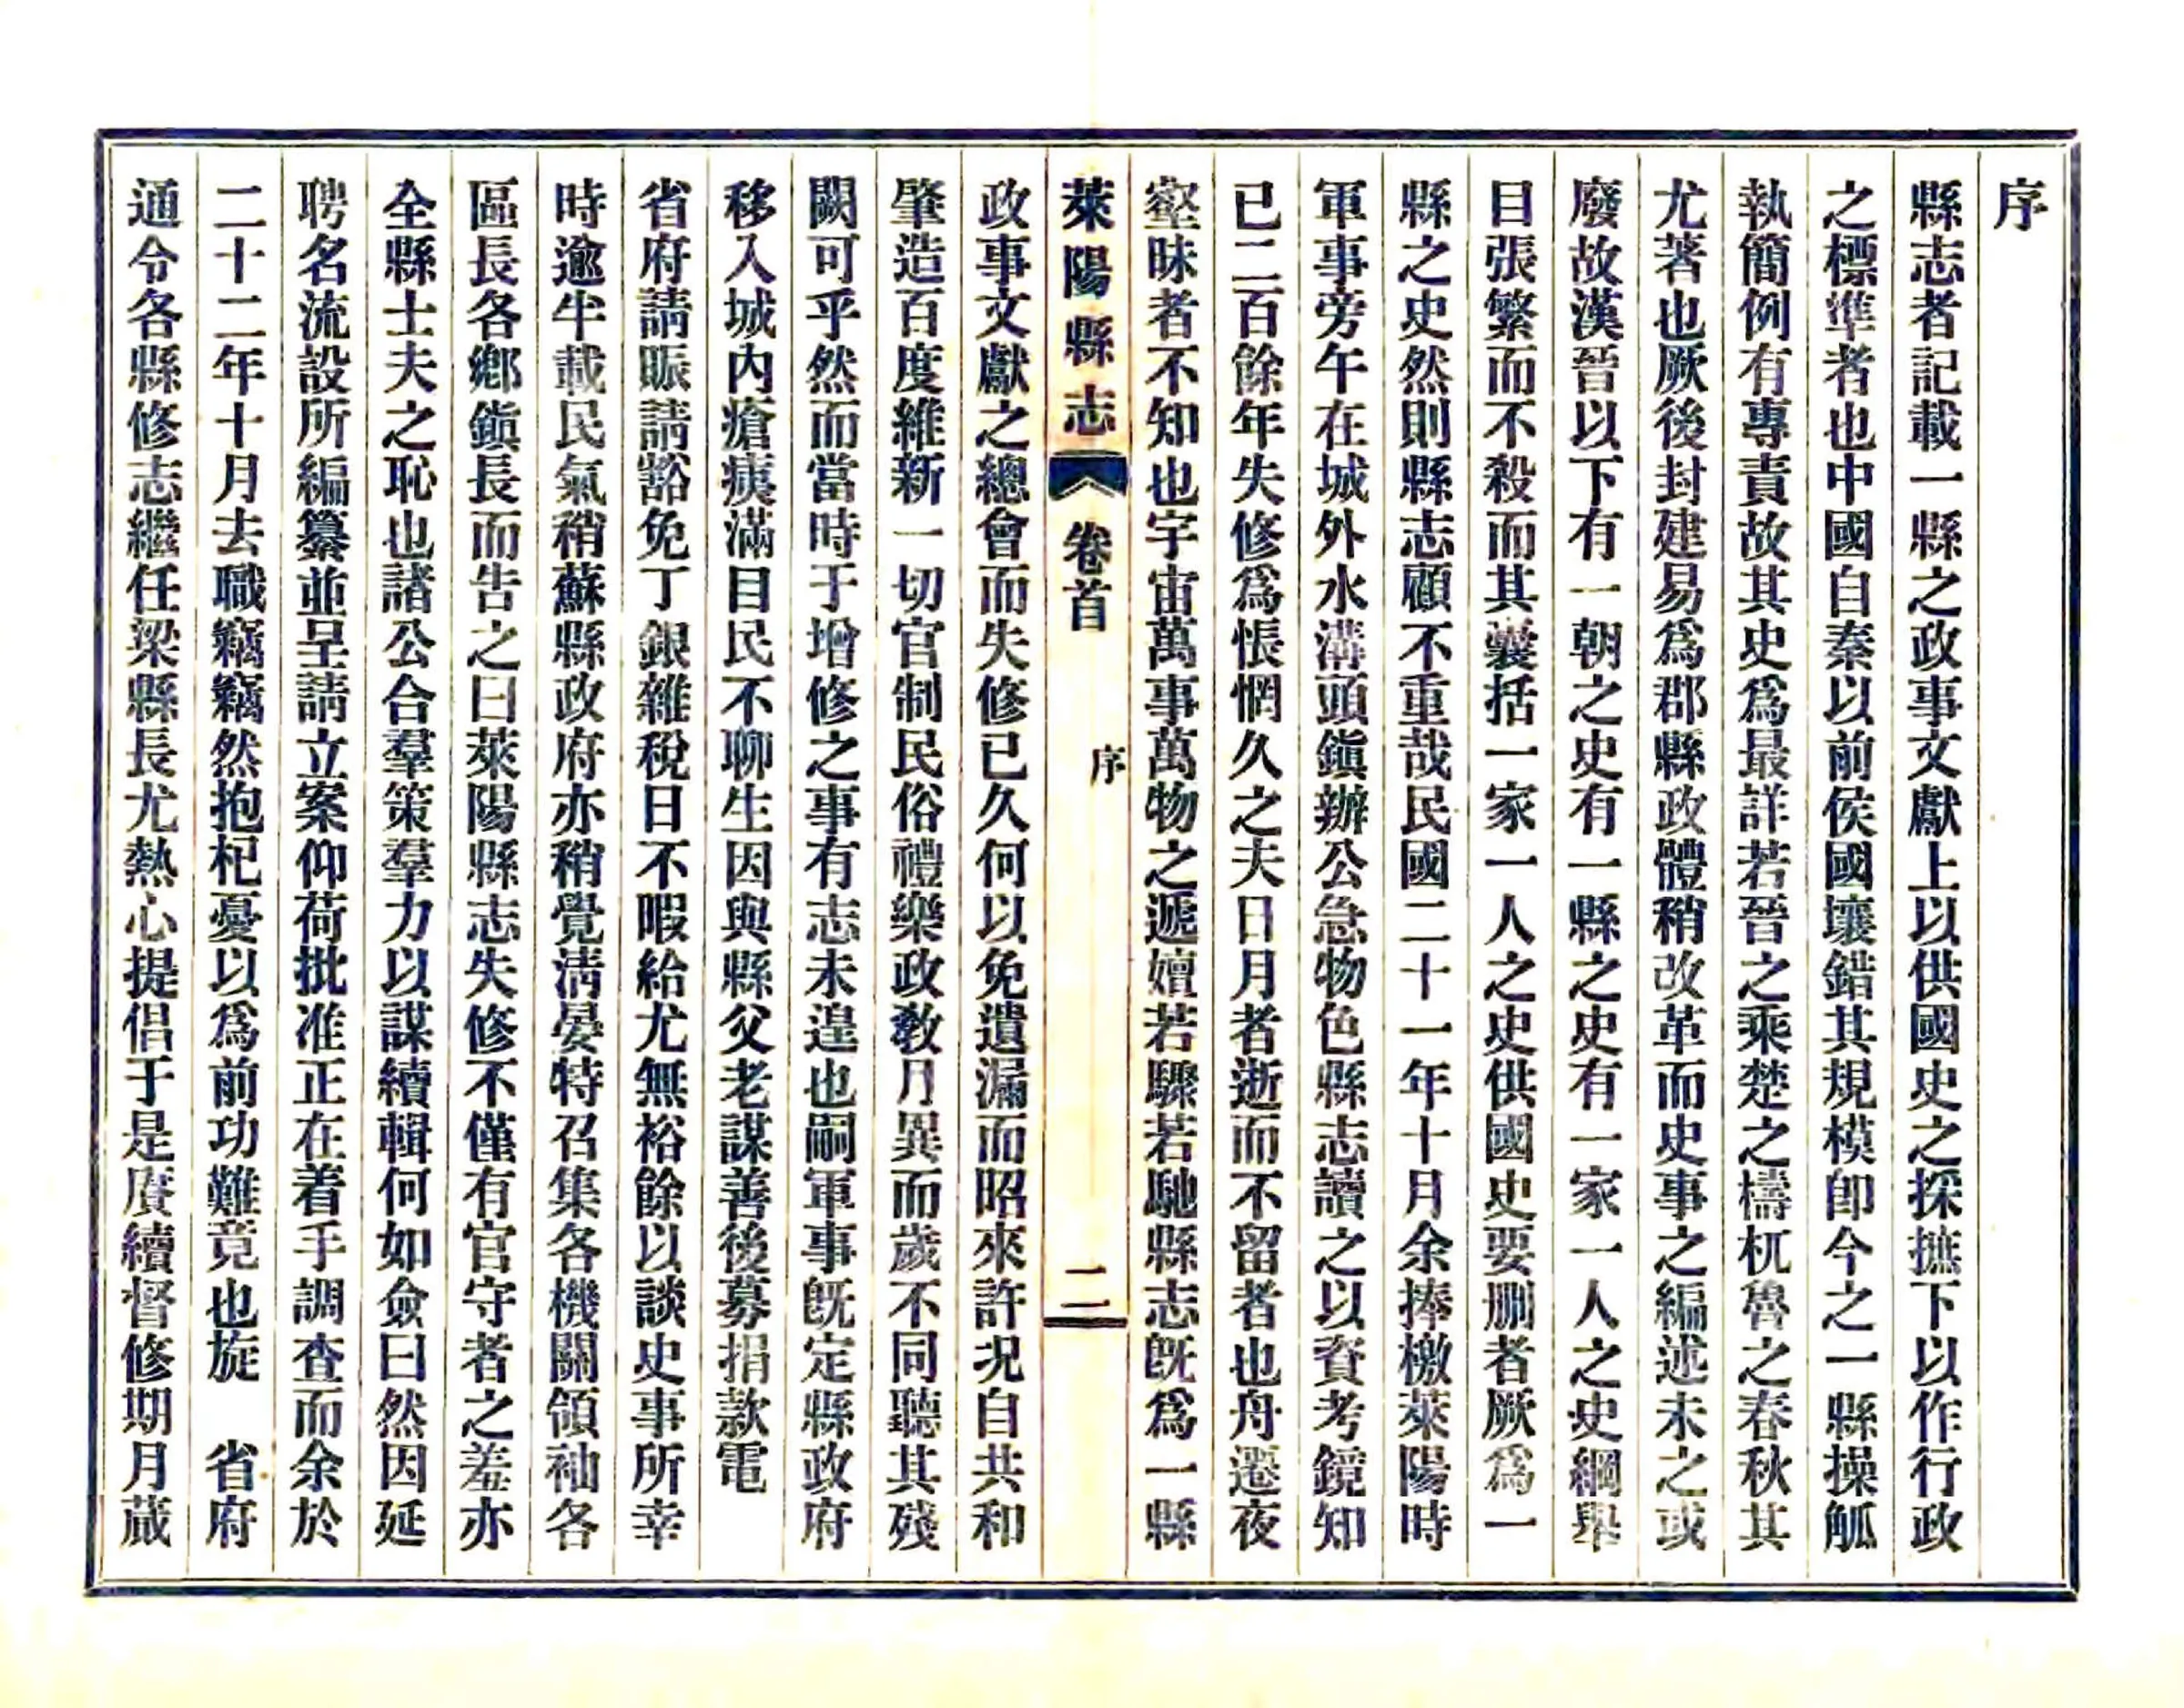 序
縣志者記載一縣之政事文獻上以供國史之探摭下以作行政
之標準者也中國自秦以前侯國壤錯其規模卽今之一縣操觚
執簡例有專責故其史爲最詳若晉之乘楚之檮杌魯之春秋其
尤著也厥後封建易爲郡縣政體稍改革而史事之編述未之或
廢故漢晉以下有一朝之史有一縣之史有一家一人之史綱舉
目張繁而不殺而其囊括一家一人之史供國史要删者厥爲一
縣之史然則縣志顧不重哉民國二十一年十月余捧檄萊陽時
軍事旁午在城外水溝頭鎭辦公急物色縣志讀之以資考鏡知
已二百餘年失修爲悵惘久之夫日月者逝而不留者也舟遷夜
壑昧者不知也宇宙萬事萬物之遞嬗若驟若馳縣志旣爲一縣
萊陽縣志 卷首 序 二
政事文獻之總會而失修已久何以免遺漏而昭來許況自共和
肇造百度維新一切官制民俗禮樂政敎月異而歲不同聽其殘
闕可乎然而當時于增修之事有志未遑也嗣軍事旣定縣政府
移入城內瘡痍滿目民不聊生因與縣父老謀善後募捐款電
省府請賑請豁免丁銀雜稅日不暇給尤無裕餘以談史事所幸
時逾半載民氣稍蘇縣政府亦稍覺淸晏特召集各機關領袖各
區長各鄉鎭長而告之曰萊陽縣志失修不僅有官守者之羞亦
全縣士夫之恥也諸公合羣策羣力以謀續輯何如僉曰然因延
聘名流設所編纂並呈請立案仰荷批准正在着手調查而余於
二十二年十月去職竊竊然抱杞憂以爲前功難竟也旋　省府
通令各縣修志繼任梁縣長尤熱心提倡于是賡續督修期月蕆